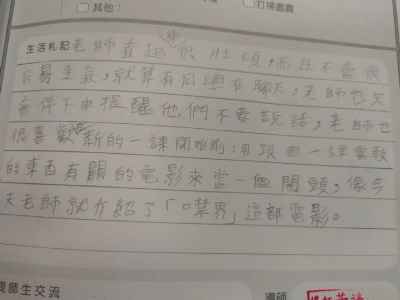 其他：
打掃書商
生活札記老師真的很性,而且不會很
容易生氣,就算有同學在聊天,老師也只
會停下來提醒他們不要說話,老師也
很喜歡新的一課開始前,用跟一課要教
的東西有關的電影來當一個開頭,像今
天老師就介紹了「口禁界」這部電影。
師生交流
導師